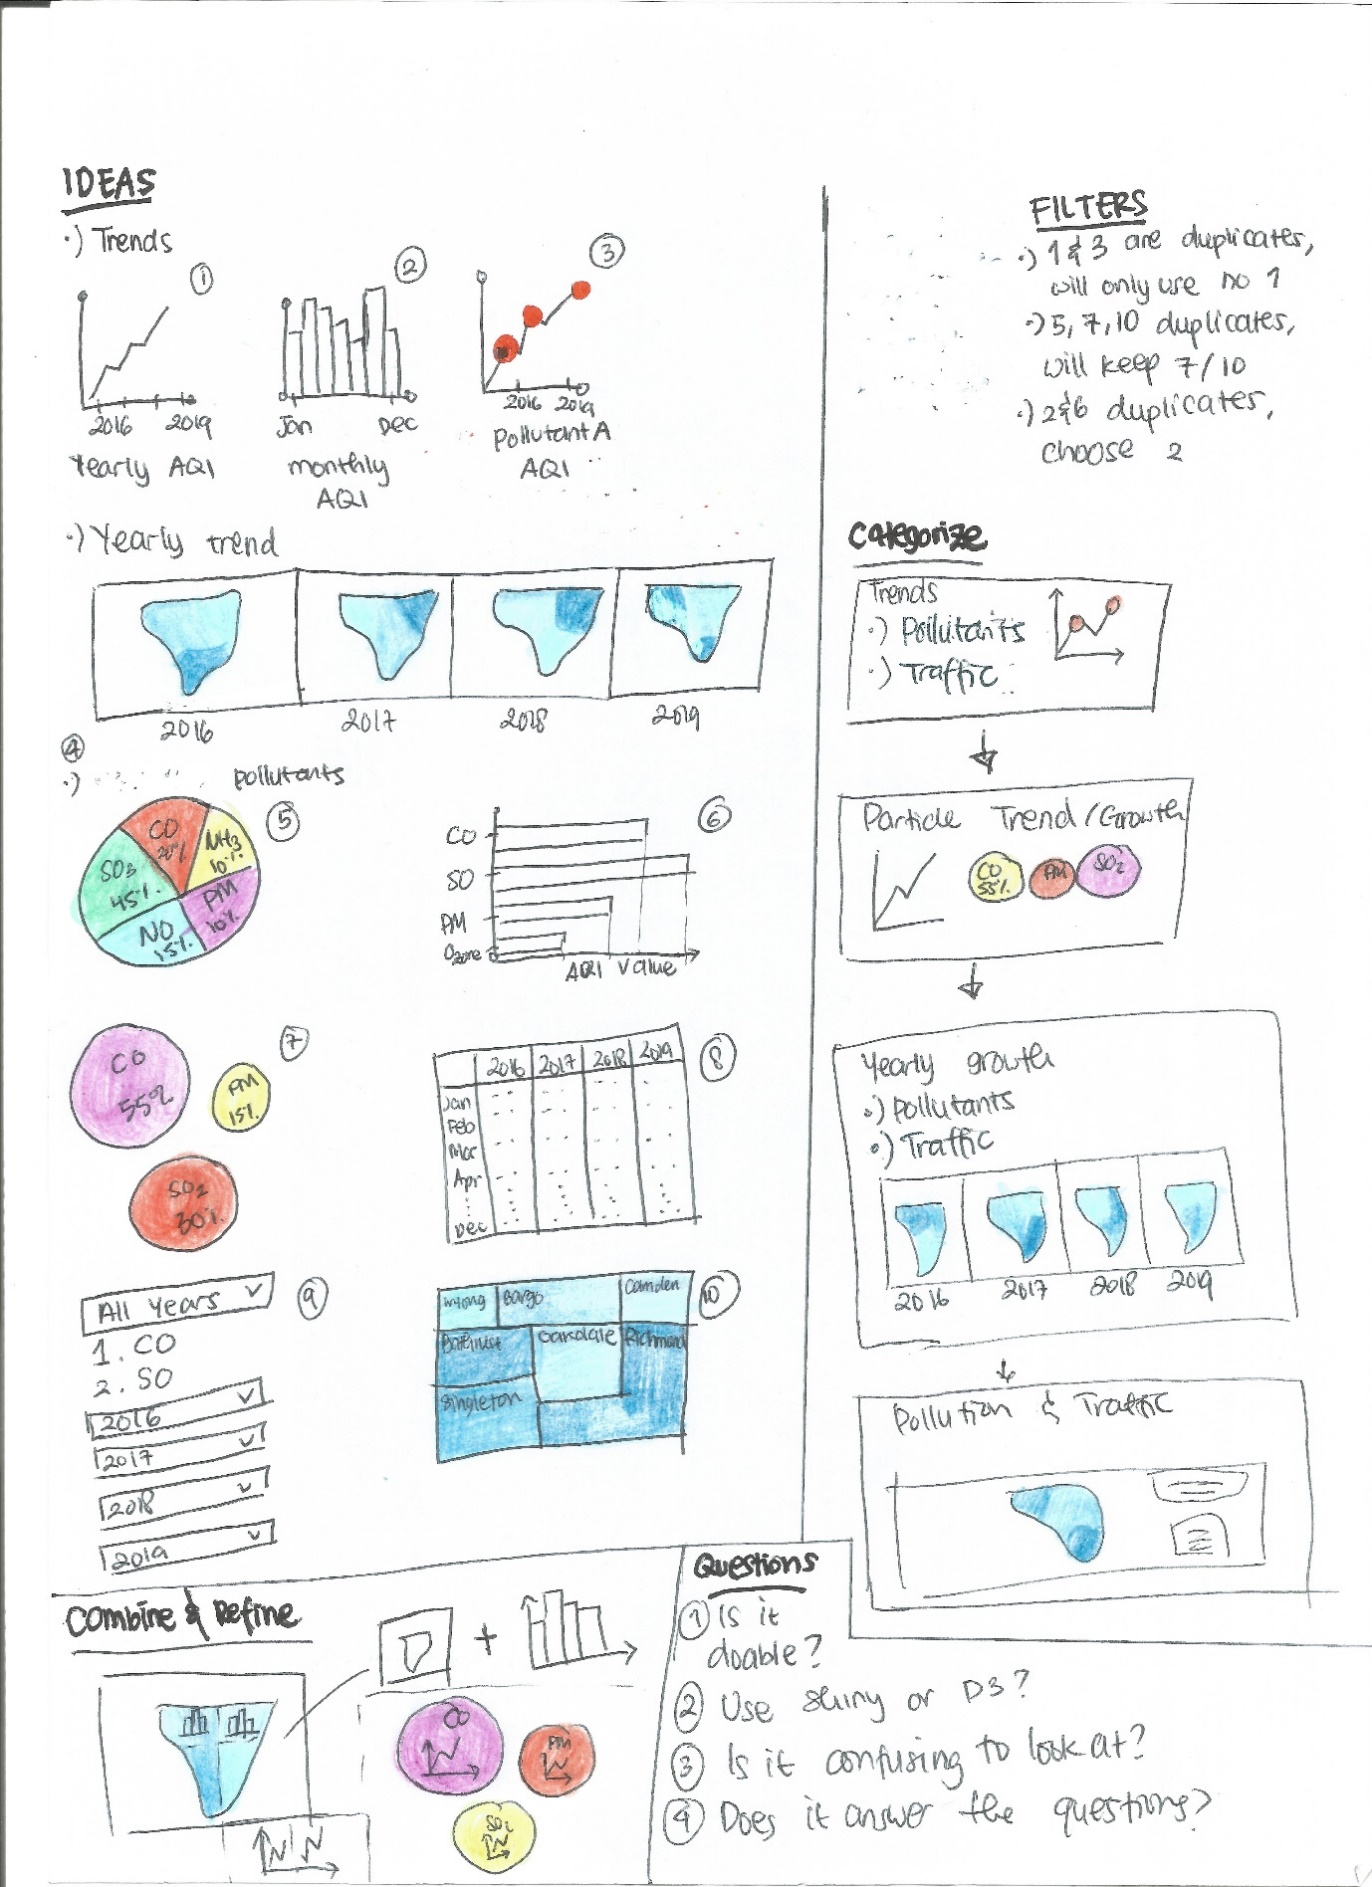 IDEAS
·) Trends
①
②
③
2016 2019
Yearly AQI
Jan Dec
monthly
AQI
2016 2019
Pollutant A
AQI
·) Yearly trend
2016 2017 2018 2019
④
·) pollutants
⑤
CO
20%
NH3
10%
SO3
45%
PM
10%
NO
15%
⑥
CO
SO
PM
Ozone
AQI Value
⑦
CO
55%
PM
15%
SO2
30%
⑧
2016 2017 2018 2019
Jan
Feb
Mar
Apr
Dec
⑨
All Years
1. CO
2. SO
2016
2017
2018
2019
⑩
Wyong Bargo Camden
Bathurst Oakdale Richmond
Singleton
FILTERS
·) 1 & 3 are duplicates,
will only use no 1
·) 5, 7, 10 duplicates,
will keep 7/10
·) 2 & 6 duplicates,
choose 2
Categorize
Trends
·) Pollutants
·) Traffic
Particle Trend / Growth
CO
55%
PM
SO2
Yearly growth
·) Pollutants
·) Traffic
2016 2017 2018 2019
Pollution & Traffic
Combine & Refine
+
CO
PM
SO2
Questions
① Is it
doable?
② Use shiny or D3?
③ Is it confusing to look at?
④ Does it answer the questions?